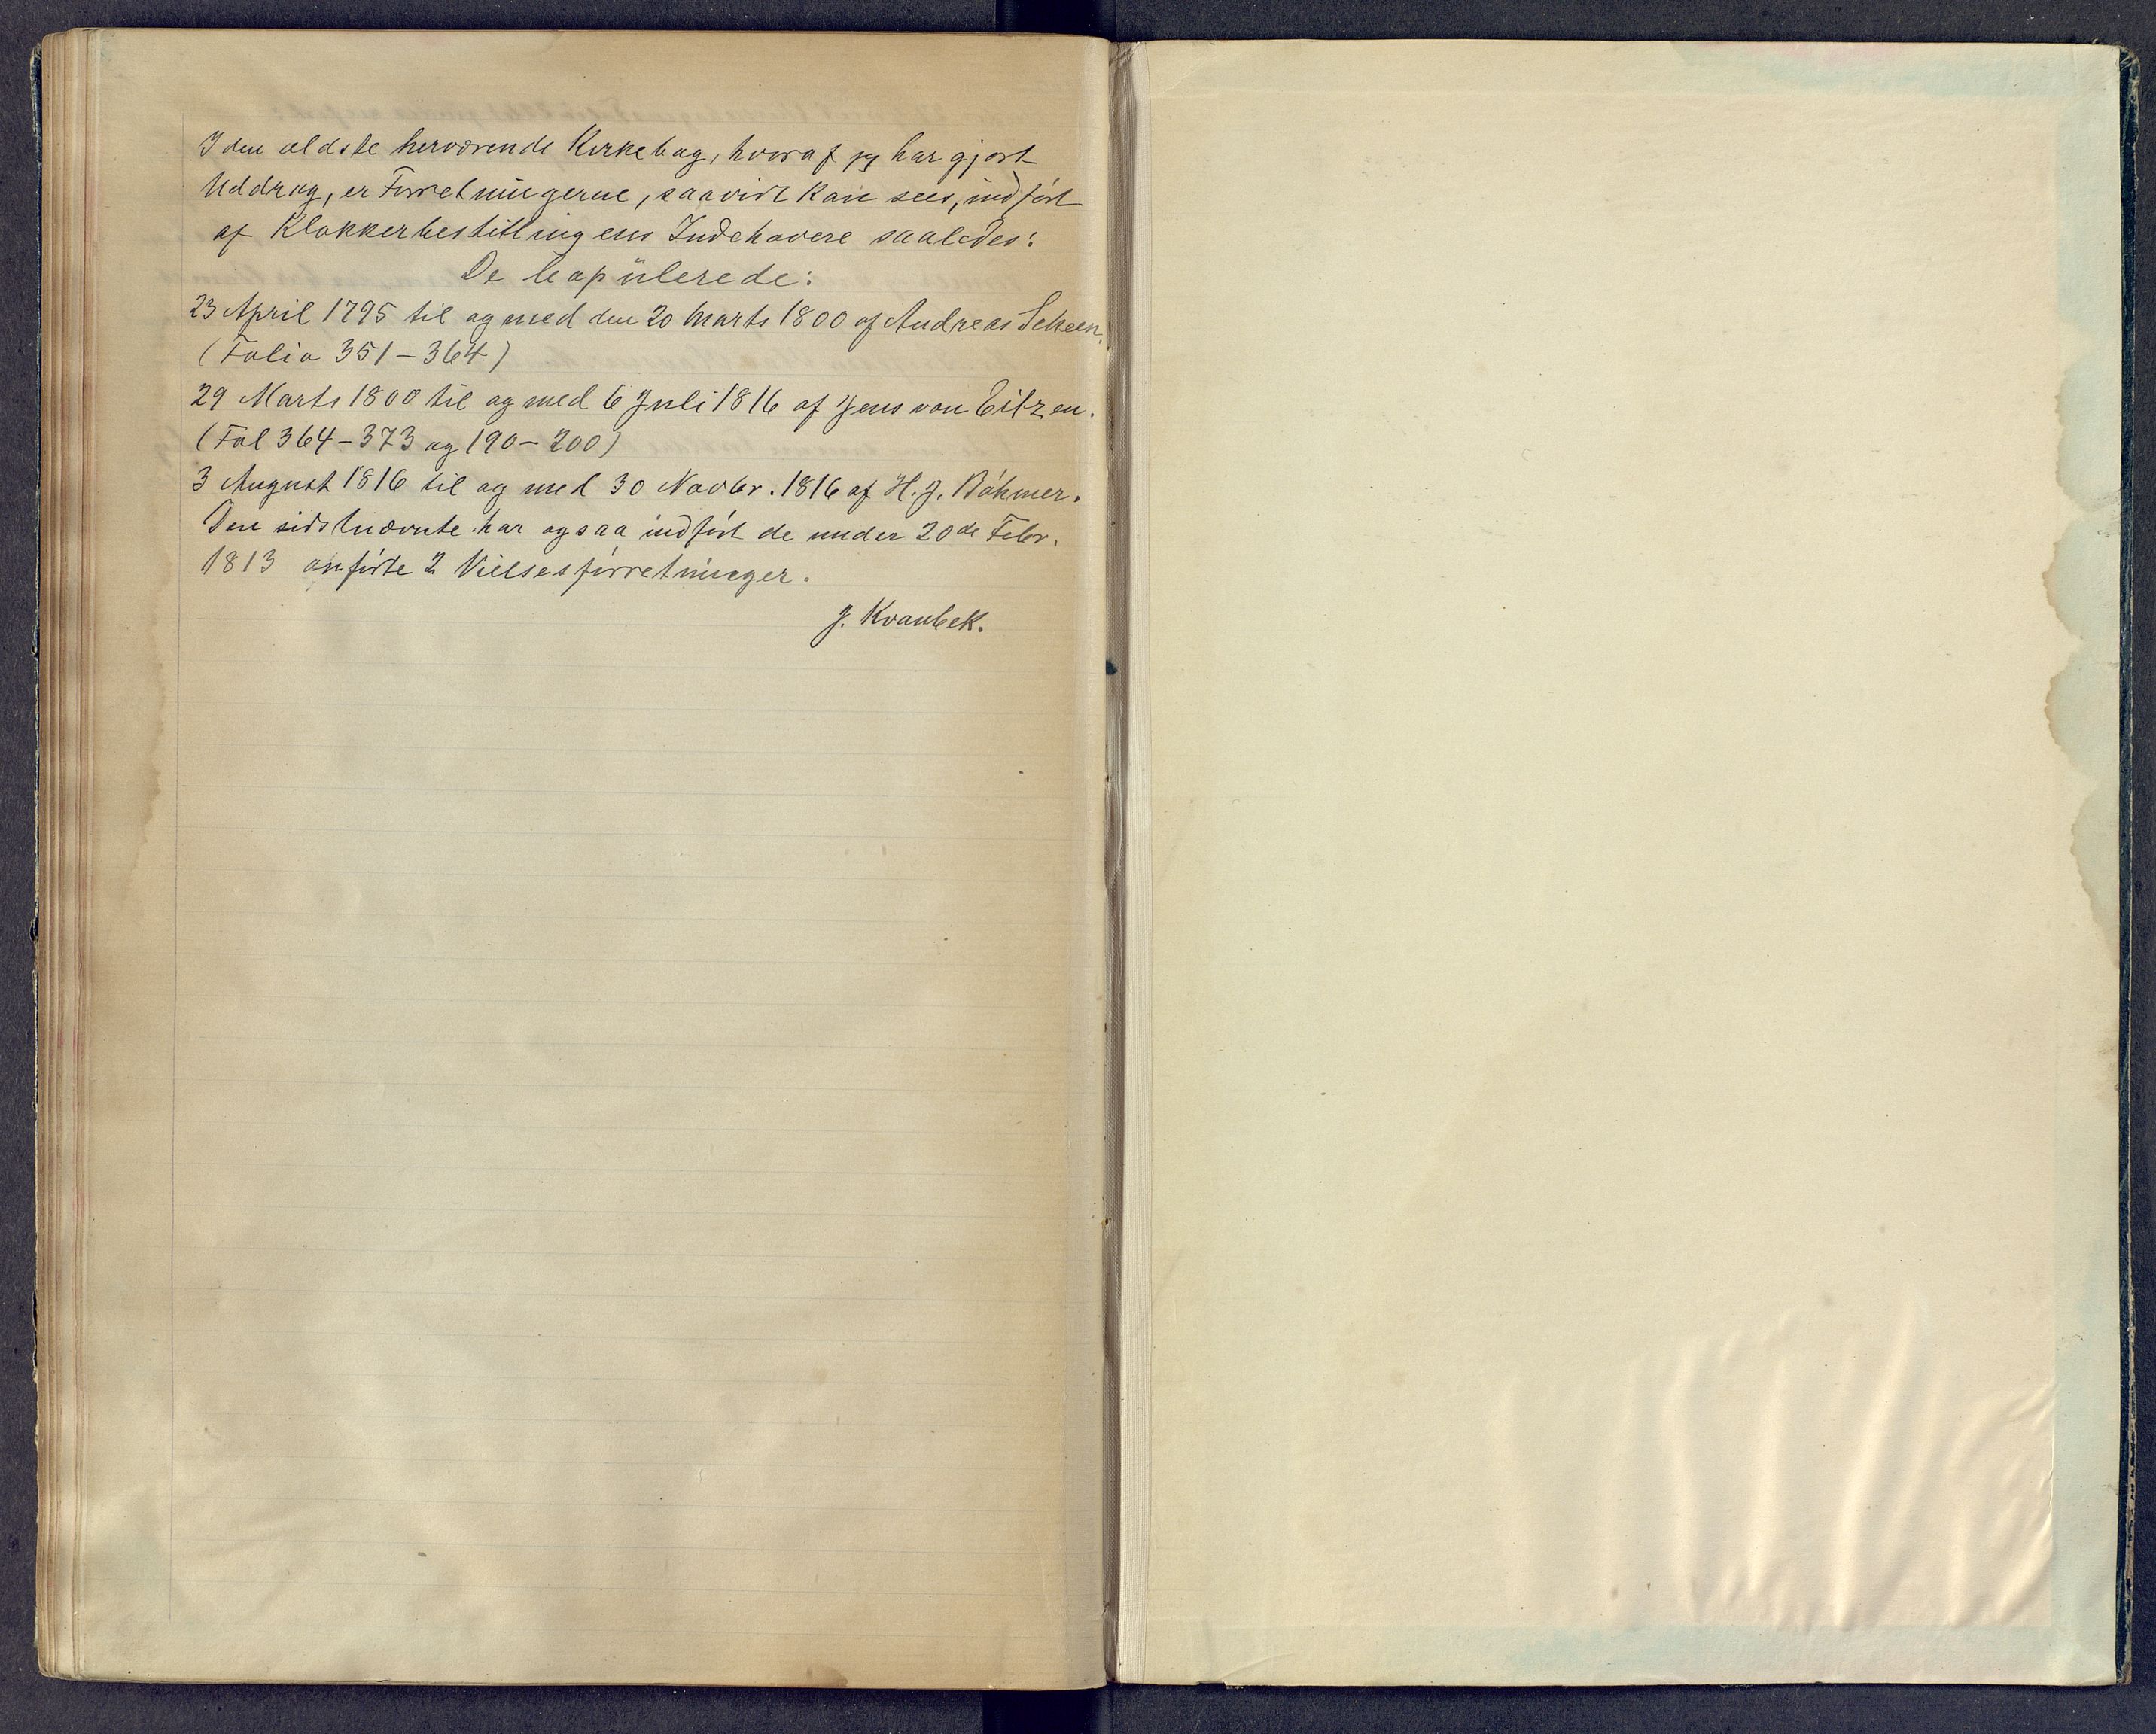 I den ældste herværende Kirkebog, hvoraf jeg har gjort
Uddrag, er Forretningerne, saavidt kan sees, indført
af Klokkerbestillingens Indehavere saaledes:
De Copülerede:
23 April 1795 til og med den 20 Marts 1800 af Andreas Scheen.
(Folio 351-364)
29 Marts 1800 til og med 6 Juli 1816 af Jens von Eitzen.
(Fol 364-373 og 190-200)
3 August 1816 til og med 30 Novbr. 1816 af H. J. Bøhmer.
Den sidstnævnte har ogsaa indført de under 20de Febr.
1813 anførte 2 Vielsesforretninger.
J. Kvanbek.